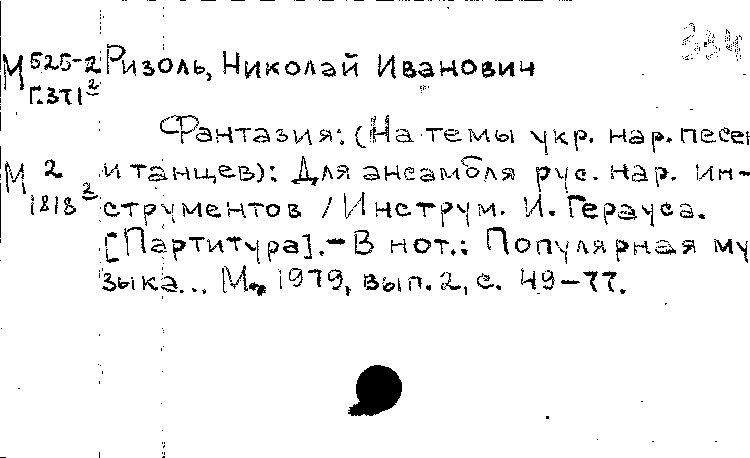 334
М 525-2 Ризоль, Николай Иванович
Г.371²
Фантазия: (На темы укр. нар. песен
М 2 и танцев): Для ансамбля рус. нар. ин-
1818² струментов / Инструм. И. Герауса.
[Партитура].- В нот.: Популярная му
зыка... М., 1979, вып. 2, с. 49-77.